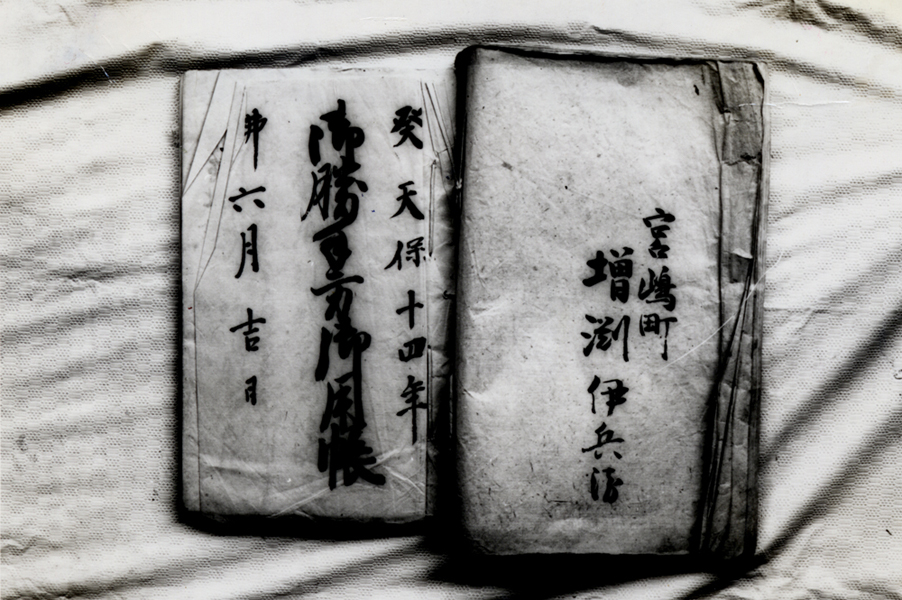 癸 天保十四年
御勝手方御用帳
卯 六月吉日
宮嶋町
増渕伊兵衛